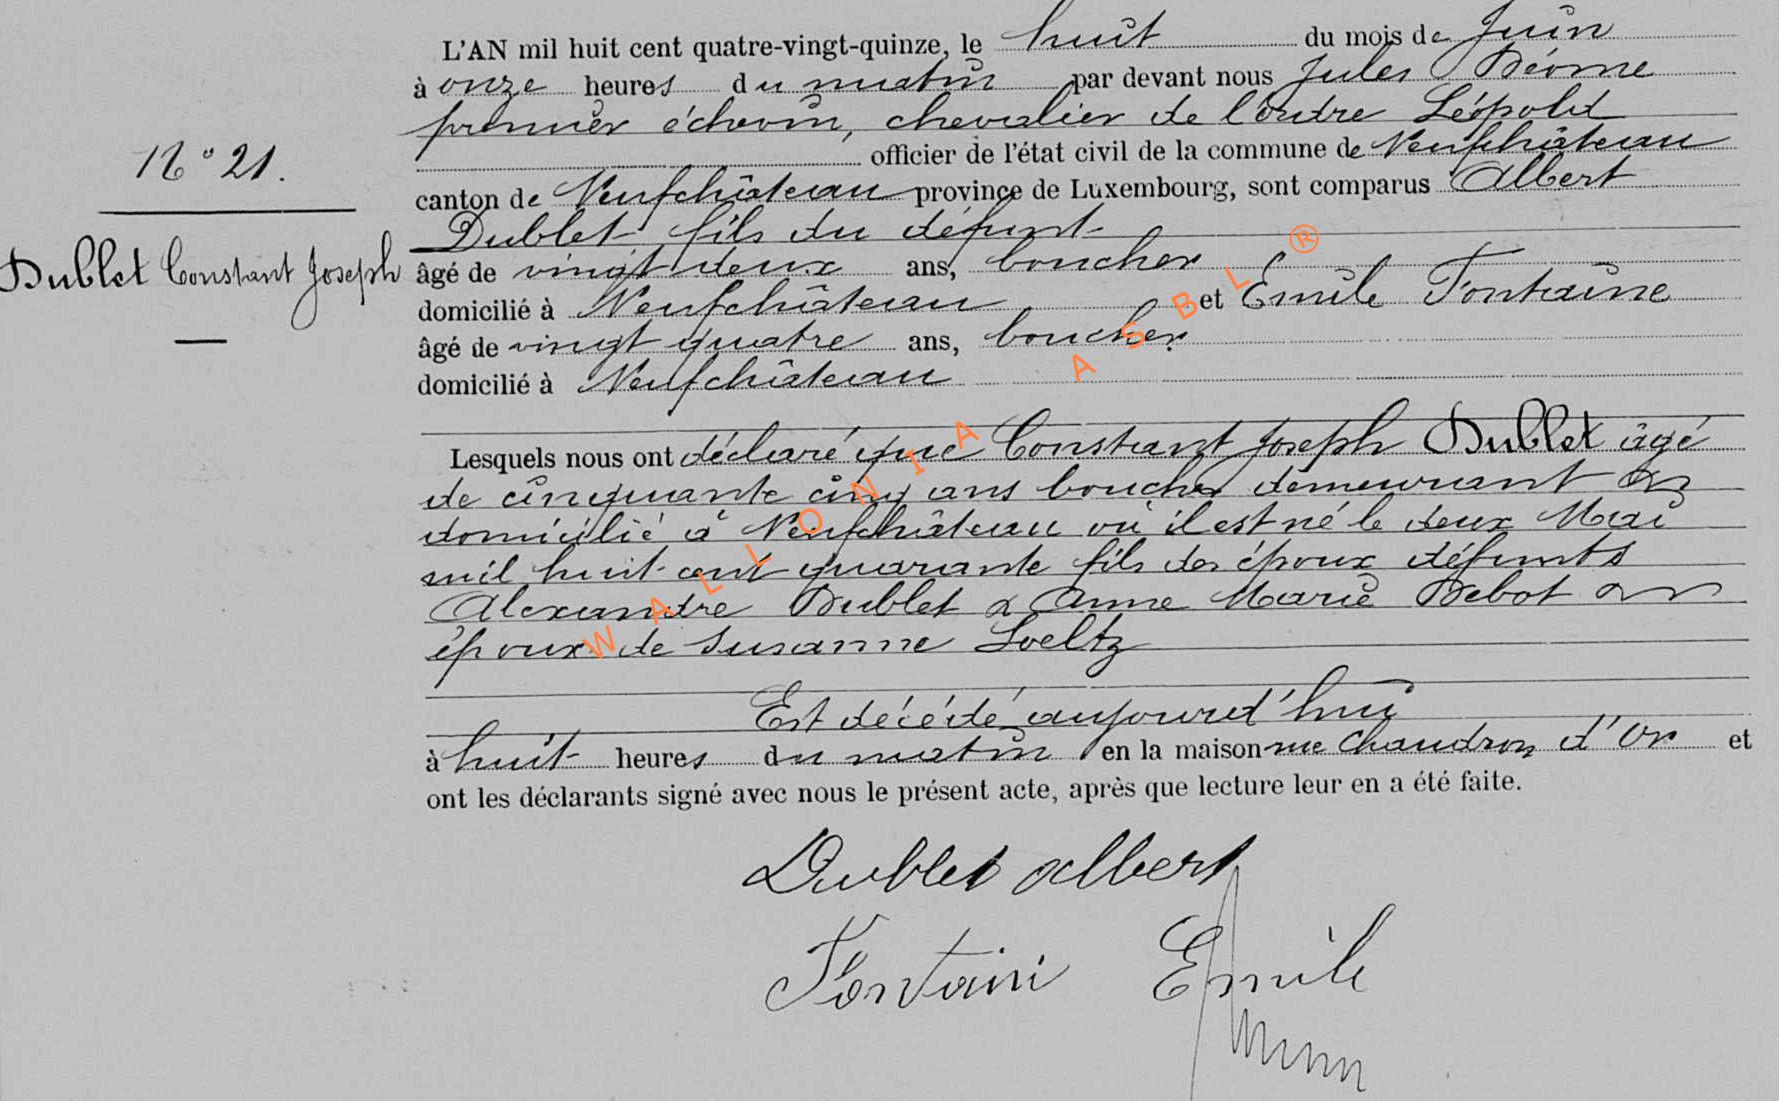 L'AN mil huit cent quatre-vingt-quinze, le huit du mois de Juin
à onze heures du matin par devant nous Jules
premier échevin, chevalier de l'ordre Léopold
officier de l'état civil de la commune de Neufchâteau
N° 21.
canton de Neufchâteau province de Luxembourg, sont comparus Albert
Dublet fils du défunt
Dublet Constant Joseph
âgé de vingt deux ans, boucher
domicilié à Neufchâteau et Emile Fontaine
âgé de vingt quatre ans, boucher
domicilié à Neufchâteau
Lesquels nous ont déclaré que Constant Joseph Dublet âgé
de cinquante cinq ans boucher demeurant &
domicilié à Neufchâteau où il est né le deux Mai
mil huit cent quarante fils des époux défunts
Alexandre Dublet & Anne Marie Debot
époux de Susanne Soeltz
Est décédé aujourd'hui
à huit heures du matin en la maison rue Chaudron d'Or et
ont les déclarants signé avec nous le présent acte, après que lecture leur en a été faite.
Dublet Albert
Fontain Emile
WALLONIA ASBL ®